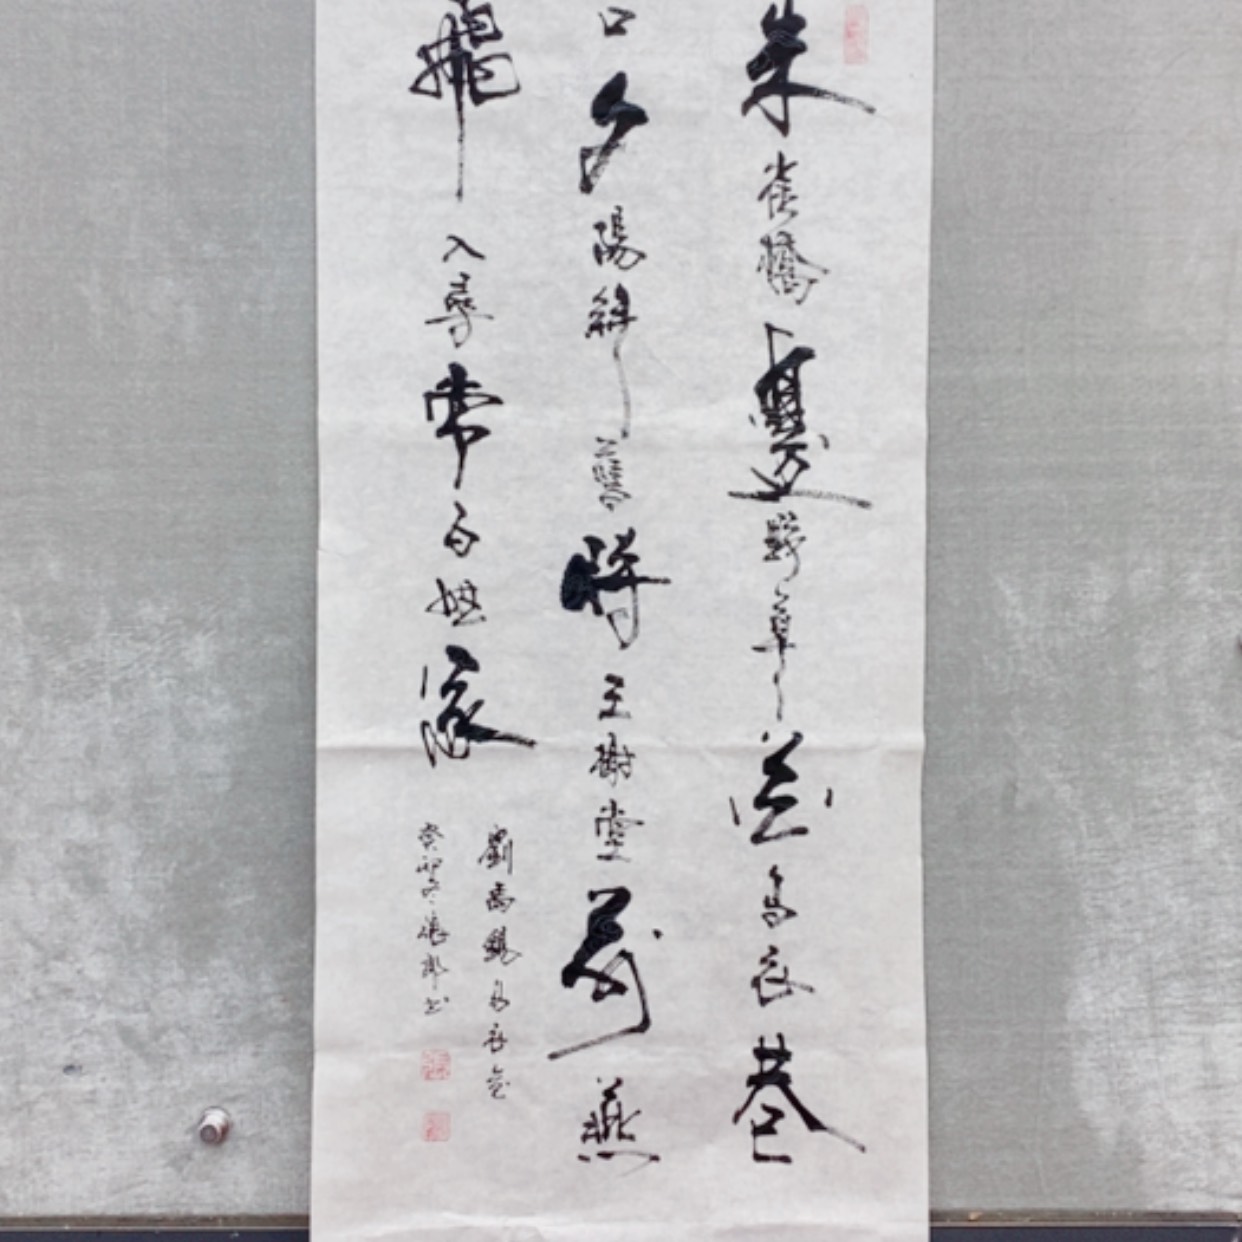 朱雀橋邊野草花烏衣巷
口夕陽斜舊時王謝堂前燕
飛入尋常百姓家
劉禹錫烏衣巷
癸卯冬